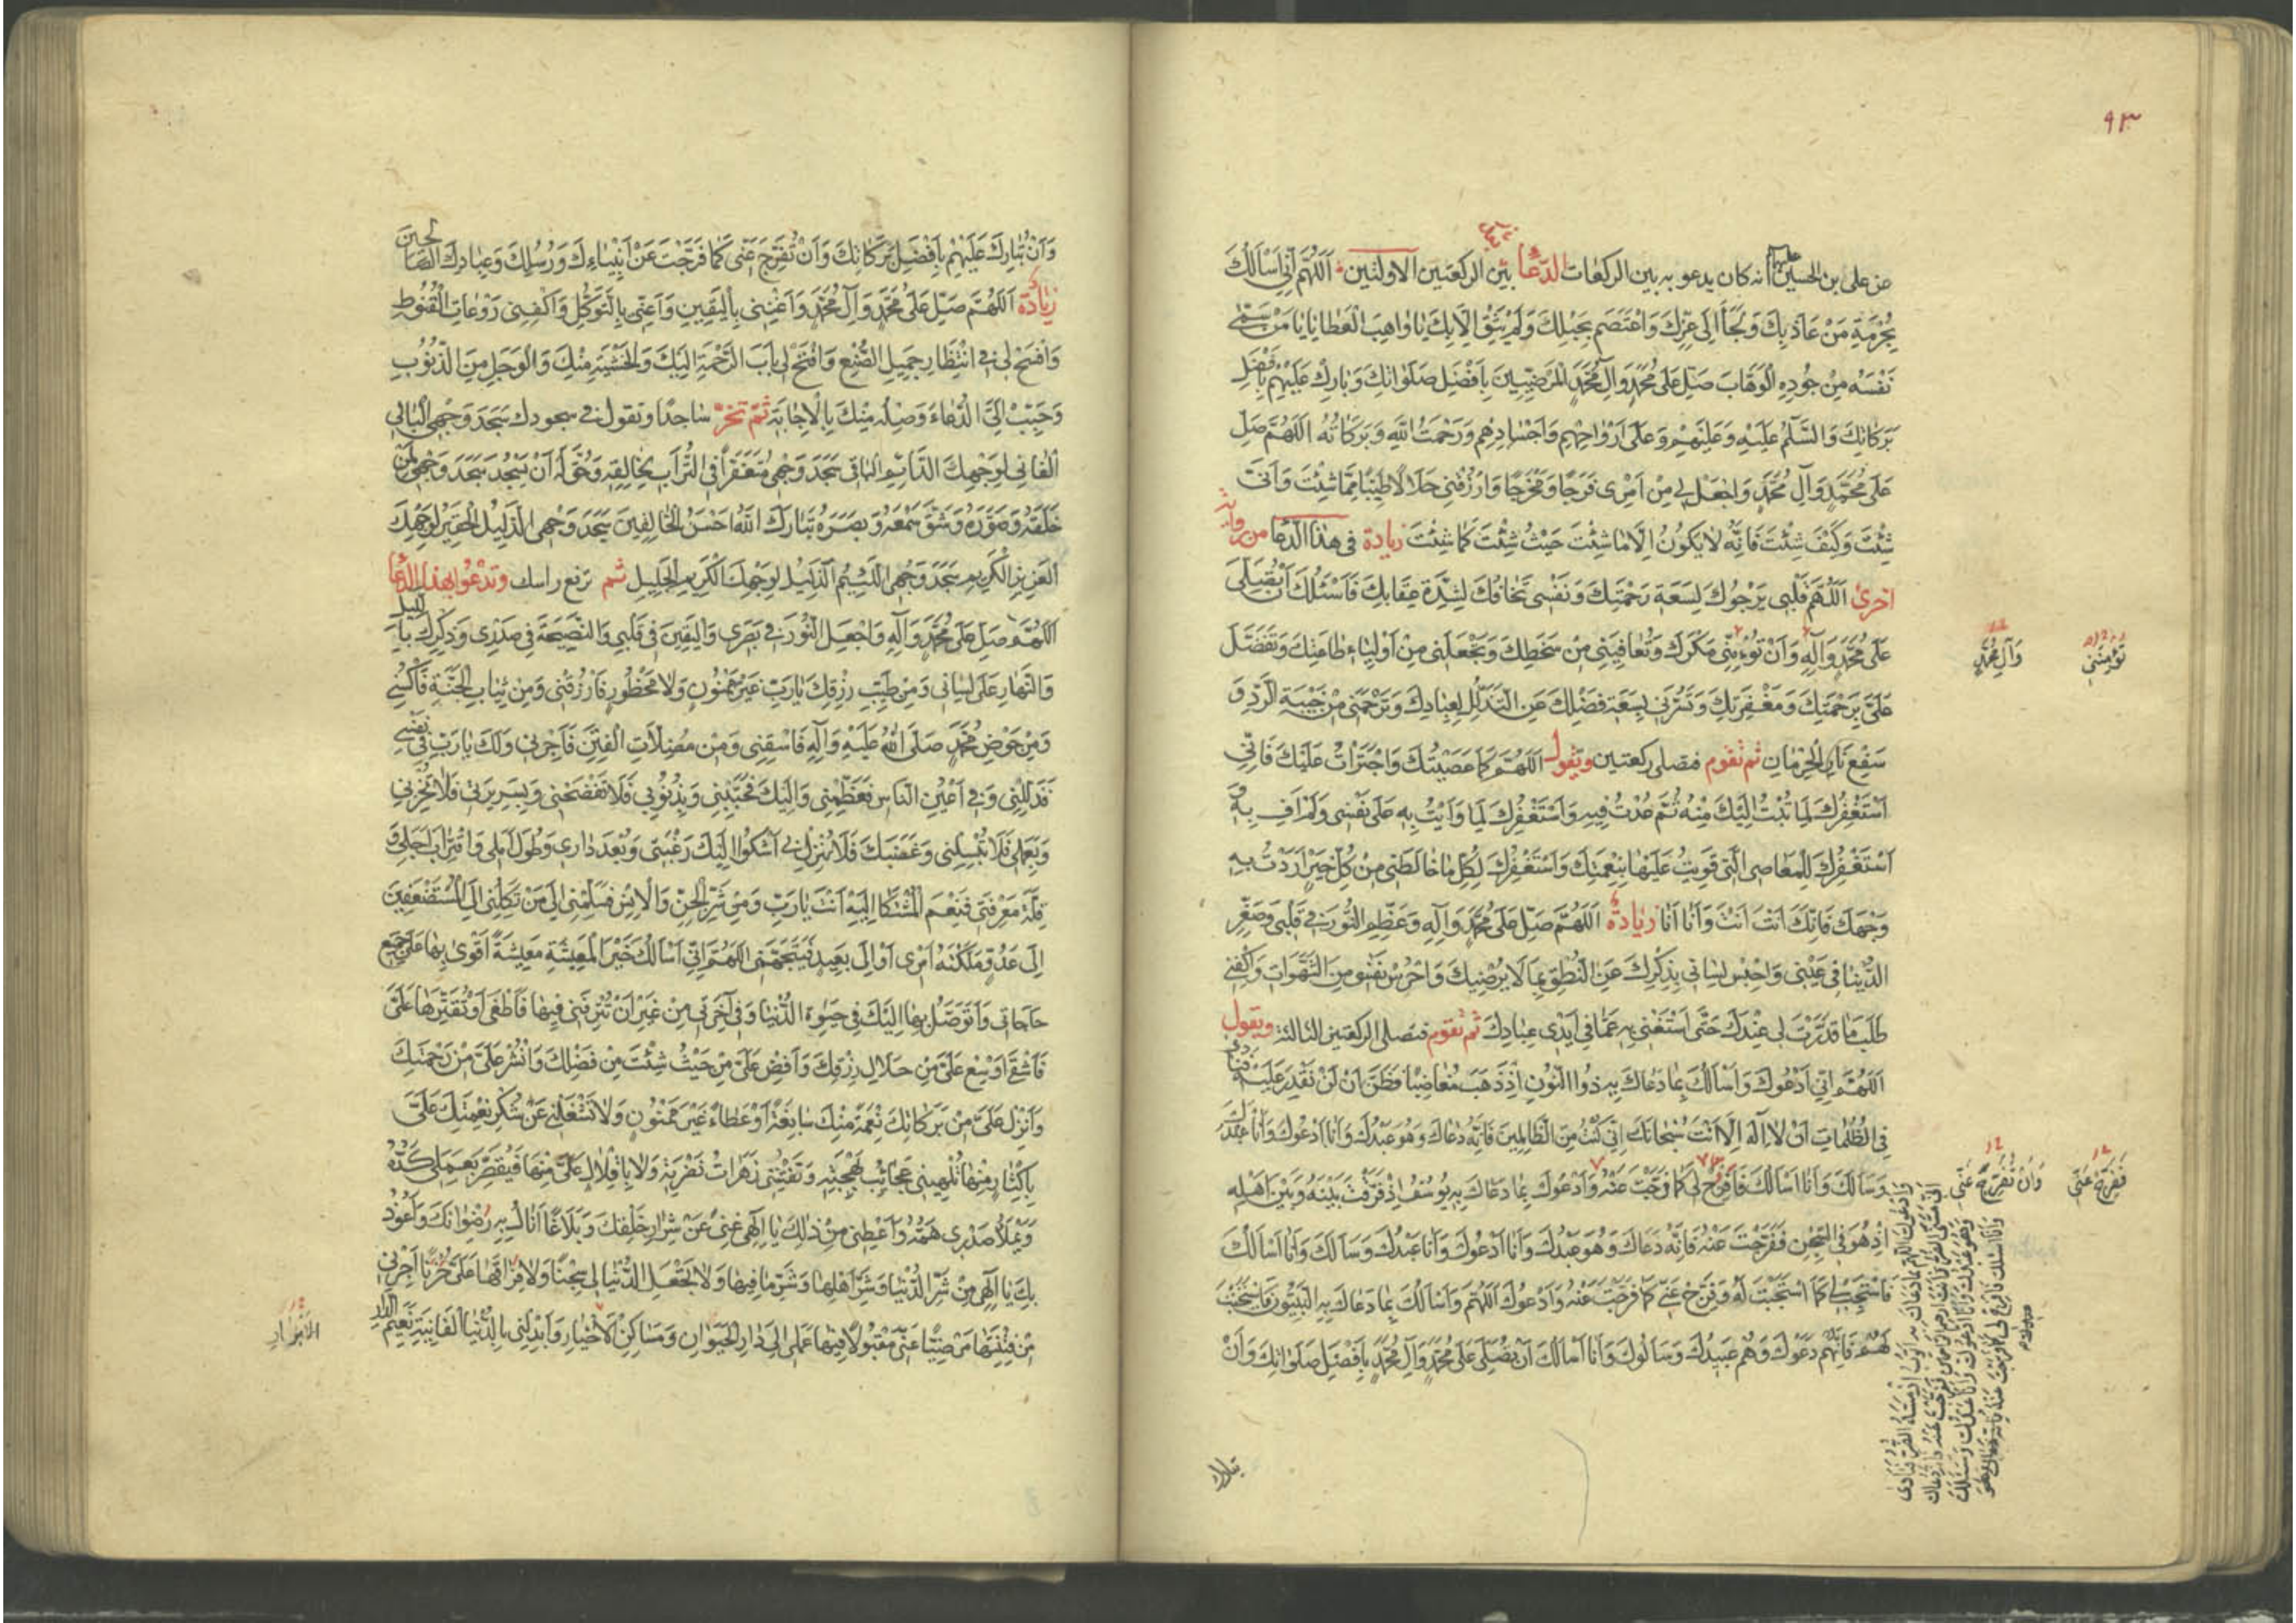 ٩٣
عن علي بن الحسين عليهما انه كان يدعو به بين الركعات الدُّعَا بين الركعتين الاولتين اَللّهُمَّ اِنّي اَسْاَلُكَ
بِحُرْمَةِ مَنْ عَاذَ بِكَ وَلَجَأَ اِلىٰ عِزِّكَ وَاعْتَصَمَ بِحَبْلِكَ وَلَمْ يَثِقْ اِلّا بِكَ يَا وَاهِبَ الْعَطَايَا يَا مَنْ سَمّىٰ
نَفْسَهُ مِنْ جُودِهِ الْوَهَّابَ صَلِّ عَلىٰ مُحَمَّدٍ وَآلِ مُحَمَّدٍ الْمَرْضِيّينَ بِاَفْضَلِ صَلَوَاتِكَ وَبَارِكْ عَلَيْهِمْ بِاَفْضَلِ
بَرَكَاتِكَ وَالسَّلٰمُ عَلَيْهِ وَعَلَيْهِمْ وَعَلىٰ اَرْوَاحِهِمْ وَاَجْسَادِهِمْ وَرَحْمَتُ اللّهِ وَبَرَكَاتُهُ اَللّهُمَّ صَلِّ
عَلىٰ مُحَمَّدٍ وَآلِ مُحَمَّدٍ وَاجْعَلْ لي مِنْ اَمْرى فَرَجًا وَمَخْرَجًا وَارْزُقْنى حَلَالًا طَيِّبًا مِمَّا شِئْتَ وَاَنّىٰ
شِئْتَ وَكَيْفَ شِئْتَ فَاِنَّهُ لَا يَكُونُ اِلّا مَا شِئْتَ حَيْثُ شِئْتَ كَمَا شِئْتَ زيادة فى هذا الدّعا من رواية
اخرى اَللّهُمَّ قَلْبى يَرْجُوكَ لِسَعَةِ رَحْمَتِكَ وَنَفْسى تَخَافُكَ لِشِدَّةِ عِقَابِكَ فَاَسْئَلُكَ اَنْ تُصَلِّىَ
عَلىٰ مُحَمَّدٍ وَآلِهِ وَاَنْ تُؤْمِنّى مَكْرَكَ وَتُعَافِيَنى مِنْ سَخَطِكَ وَتَجْعَلَنى مِنْ اَوْلِيَاءِ طَاعَتِكَ وَتَفَضَّلَ
وَآلِ مُحَمَّدٍ
تُؤْمِنَنى
عَلَىَّ بِرَحْمَتِكَ وَمَغْفِرَتِكَ وَتَسُرَّنى بِسَعَةِ فَضْلِكَ عَنِ التَّذَلُّلِ لِعِبَادِكَ وَتَرْحَمَنى مِنْ خَيْبَةِ الرَّدِّ وَ
سَفْعِ نَارِ الْحِرْمَانِ ثم تقوم فتصلى ركعتين وتقول اَللّهُمَّ كَمَا عَصَيْتُكَ وَاجْتَرَأْتُ عَلَيْكَ فَاِنّى
اَسْتَغْفِرُكَ لِمَا تُبْتُ اِلَيْكَ مِنْهُ ثُمَّ عُدْتُ فيهِ وَاَسْتَغْفِرُكَ لِمَا وَاَيْتُ بِهِ عَلىٰ نَفْسى وَلَمْ اَفِ بِهِ وَ
اَسْتَغْفِرُكَ لِلْمَعَاصى الَّتى قَوِيتُ عَلَيْهَا بِنِعْمَتِكَ وَاَسْتَغْفِرُكَ لِكُلِّ مَا خَالَطَنى مِنْ كُلِّ خَيْرٍ اَرَدْتُ بِهِ
وَجْهَكَ فَاِنَّكَ اَنْتَ اَنْتَ وَاَنَا اَنَا زيادة اَللّهُمَّ صَلِّ عَلىٰ مُحَمَّدٍ وَآلِهِ وَعَظِّمِ النُّورَ فى قَلْبى وَصَغِّرِ
الدُّنْيَا فى عَيْنى وَاحْبِسْ لِسَانى بِذِكْرِكَ عَنِ النُّطْقِ بِمَا لَا يُرْضيكَ وَاحْرُسْ نَفْسى مِنَ الشَّهَوَاتِ وَاكْفِنى
طَلَبَ مَا قَدَّرْتَ لى عِنْدَكَ حَتّىٰ اَسْتَغْنِىَ بِهِ عَمَّا فى اَيْدى عِبَادِكَ ثم تقوم فتصلى الركعتين الثالثة وتقول
اَللّهُمَّ اِنّى اَدْعُوكَ وَاَسْاَلُكَ بِمَا دَعَاكَ بِهِ ذُوا النُّونِ اِذْ ذَهَبَ مُغَاضِبًا فَظَنَّ اَنْ لَنْ نَقْدِرَ عَلَيْهِ فَنَادىٰ
فِى الظُّلُمَاتِ اَنْ لَا اِلٰهَ اِلّا اَنْتَ سُبْحَانَكَ اِنّى كُنْتُ مِنَ الظَّالِمينَ فَاِنَّهُ دَعَاكَ وَهُوَ عَبْدُكَ وَاَنَا اَدْعُوكَ وَاَنَا عَبْدُكَ
وَسَاَلَكَ وَاَنَا اَسْاَلُكَ فَافْرُجْ لى كَمَا فَرَّجْتَ عَنْهُ وَاَدْعُوكَ بِمَا دَعَاكَ بِهِ يُوسُفُ اِذْ فَرَّقْتَ بَيْنَهُ وَبَيْنَ اَهْلِهِ
وَاَنْ تُفَرِّجَ عَنّى
فَفَرِّجْ عَنّى
اِذْ هُوَ فِى السِّجْنِ فَفَرَّجْتَ عَنْهُ فَاِنَّهُ دَعَاكَ وَهُوَ عَبْدُكَ وَاَنَا اَدْعُوكَ وَاَنَا عَبْدُكَ وَسَاَلَكَ وَاَنَا اَسْاَلُكَ
فَاسْتَجِبْ لى كَمَا اسْتَجَبْتَ لَهُ وَفَرِّجْ عَنّى كَمَا فَرَّجْتَ عَنْهُ وَاَدْعُوكَ اَللّهُمَّ وَاَسْاَلُكَ بِمَا دَعَاكَ بِهِ النَّبِيُّونَ فَاسْتَجَبْتَ
لَهُمْ فَاِنَّهُمْ دَعَوْكَ وَهُمْ عَبيدُكَ وَسَاَلُوكَ وَاَنَا اَسْاَلُكَ اَنْ تُصَلِّىَ عَلىٰ مُحَمَّدٍ وَآلِ مُحَمَّدٍ بِاَفْضَلِ صَلَوَاتِكَ وَاَنْ
وَاَدْعُوكَ اللّهُمَّ بِمَا دَعَاكَ بِهِ اَيُّوبُ اِذْ مَسَّهُ الضُّرُّ فَنَادىٰ
اَنّى مَسَّنِىَ الضُّرُّ وَاَنْتَ اَرْحَمُ الرَّاحِمينَ فَفَرَّجْتَ عَنْهُ فَاِنَّهُ دَعَاكَ
وَهُوَ عَبْدُكَ وَاَنَا اَدْعُوكَ وَاَنَا عَبْدُكَ وَسَئَلَكَ
وَاَنَا اَسْئَلُكَ فَافْرُجْ لى كَمَا فَرَّجْتَ عَنْهُ
تبارك
وَاَنْ تُبَارِكَ عَلَيْهِمْ بِاَفْضَلِ بَرَكَاتِكَ وَاَنْ تُفَرِّجَ عَنّى كَمَا فَرَّجْتَ عَنْ اَنْبِيَاءِكَ وَرُسُلِكَ وَعِبَادِكَ الصَّالِحينَ
زيادة اَللّهُمَّ صَلِّ عَلىٰ مُحَمَّدٍ وَآلِ مُحَمَّدٍ وَاَغْنِنى بِالْيَقينِ وَاَعِنّى بِالتَّوَكُّلِ وَاكْفِنى رَوْعَاتِ الْقُنُوطِ
وَافْسَحْ لى فى انْتِظَارِ جَميلِ الصُّنْعِ وَافْتَحْ لى بَابَ الرَّحْمَةِ اِلَيْكَ وَالْخَشْيَةِ مِنْكَ وَالْوَجَلِ مِنَ الذُّنُوبِ
وَحَبِّبْ اِلَىَّ الدُّعَاءَ وَصِلْهُ مِنْكَ بِالْاِجَابَةِ ثمّ تخرّ ساجدًا وتقول فى سجودك سَجَدَ وَجْهِىَ الْبَالى
الْفَانى لِوَجْهِكَ الدَّائِمِ الْبَاقى سَجَدَ وَجْهى مُتَعَفِّرًا فِى التُّرَابِ لِخَالِقِهِ وَحُقَّ لَهُ اَنْ يَسْجُدَ سَجَدَ وَجْهى لِمَنْ
خَلَقَهُ وَصَوَّرَهُ وَشَقَّ سَمْعَهُ وَبَصَرَهُ تَبَارَكَ اللّهُ اَحْسَنُ الْخَالِقينَ سَجَدَ وَجْهِىَ الذَّليلُ الْحَقيرُ لِوَجْهِكَ
الْعَزيزِ الْكَريمِ سَجَدَ وَجْهِىَ اللَّئيمُ الذَّليلُ لِوَجْهِكَ الْكَريمِ الْجَليلِ ثم ترفع راسك وتدعوا بهذا الدّعا
اَللّهُمَّ صَلِّ عَلىٰ مُحَمَّدٍ وَآلِهِ وَاجْعَلِ النُّورَ فى بَصَرى وَالْيَقينَ فى قَلْبى وَالنَّصيحَةَ فى صَدْرى وَذِكْرَكَ بِاللَّيْلِ
وَالنَّهَارِ عَلىٰ لِسَانى وَمِنْ طَيِّبِ رِزْقِكَ يَارَبِّ غَيْرَ مَمْنُونٍ وَلَا مَحْظُورٍ فَارْزُقْنى وَمِنْ ثِيَابِ الْجَنَّةِ فَاكْسُنى
وَمِنْ حَوْضِ مُحَمَّدٍ صَلَى اللّهُ عَلَيْهِ وَآلِهِ فَاسْقِنى وَمِنْ مُضِلَّاتِ الْفِتَنِ فَاَجِرْنى وَلَكَ يَارَبِّ فى نَفْسى
فَذَلِّلْنى وَفى اَعْيُنِ النَّاسِ فَعَظِّمْنى وَاِلَيْكَ فَحَبِّبْنى وَبِذُنُوبى فَلَا تَفْضَحْنى وَبِسَريرَتى فَلَا تُخْزِنى
وَبِعَمَلى فَلَا تُبْسِلْنى وَغَضَبَكَ فَلَا تُنْزِلْ بى اَشْكُوا اِلَيْكَ غُرْبَتى وَبُعْدَ دَارى وَطُولَ اَمَلى وَاقْتِرَابَ اَجَلى وَ
قِلَّةَ مَعْرِفَتى فَنِعْمَ الْمُشْتَكَا اِلَيْهِ اَنْتَ يَارَبِّ وَمِنْ شَرِّ الْجِنِّ وَالْاِنْسِ فَسَلِّمْنى اِلىٰ مَنْ تَكِلُنى اِلَى الْمُسْتَضْعَفينَ
اِلىٰ عَدُوٍّ مَلَّكْتَهُ اَمْرى اَوْ اِلىٰ بَعيدٍ فَيَتَجَهَّمَنى اَللّهُمَّ اِنّى اَسْاَلُكَ خَيْرَ الْمَعيشَةِ مَعيشَةً اَقْوىٰ بِهَا عَلىٰ جَميعِ
حَاجَاتى وَاَتَوَصَّلُ بِهَا اِلَيْكَ فى حَيٰوةِ الدُّنْيَا وَفى آخِرَتى مِنْ غَيْرِ اَنْ تُتْرِفَنى فيهَا فَاَطْغىٰ اَوْ تُقَتِّرَهَا عَلَىَّ
فَاَشْقىٰ اَوْسِعْ عَلَىَّ مِنْ حَلَالِ رِزْقِكَ وَاَفِضْ عَلَىَّ مِنْ حَيْثُ شِئْتَ مِنْ فَضْلِكَ وَانْشُرْ عَلَىَّ مِنْ رَحْمَتِكَ
وَاَنْزِلْ عَلَىَّ مِنْ بَرَكَاتِكَ نِعْمَةً مِنْكَ سَابِغَةً اَوْ عَطَاءً غَيْرَ مَمْنُونٍ وَلَا تَشْغَلْنى عَنْ شُكْرِ نِعْمَتِكَ عَلَىَّ
بِاِكْثَارٍ مِنْهَا تُلْهينى عَجَائِبُ بَهْجَتِهِ وَتَفْتِنُنى زَهَرَاتُ نَضْرَتِهِ وَلَا بِاِقْلَالٍ عَلَىَّ مِنْهَا فَيَقْصُرَ بِعَمَلى كَدُّهُ
وَيَمْلَأَ صَدْرى هَمُّهُ وَاَعْطِنى مِنْ ذٰلِكَ يَا اِلٰهى غِنىً عَنْ شِرَارِ خَلْقِكَ وَبَلَاغًا اَنَالُ بِهِ رِضْوَانَكَ وَاَعُوذُ
بِكَ يَا اِلٰهى مِنْ شَرِّ الدُّنْيَا وَشَرِّ اَهْلِهَا وَشَرِّ مَا فيهَا وَلَا تَجْعَلِ الدُّنْيَا لى سِجْنًا وَلَا فِرَاقَهَا عَلَىَّ حُزْنًا اَجِرْنى
مِنْ فِتْنَتِهَا مَرْضِيًّا عَنّى مَقْبُولًا فيهَا عَمَلى اِلىٰ دَارِ الْحَيَوَانِ وَمَسَاكِنِ الْاَخْيَارِ وَاَبْدِلْنى بِالدُّنْيَا الْفَانِيَةِ نَعيمَ الدَّارِ
الاَبْرَارِ